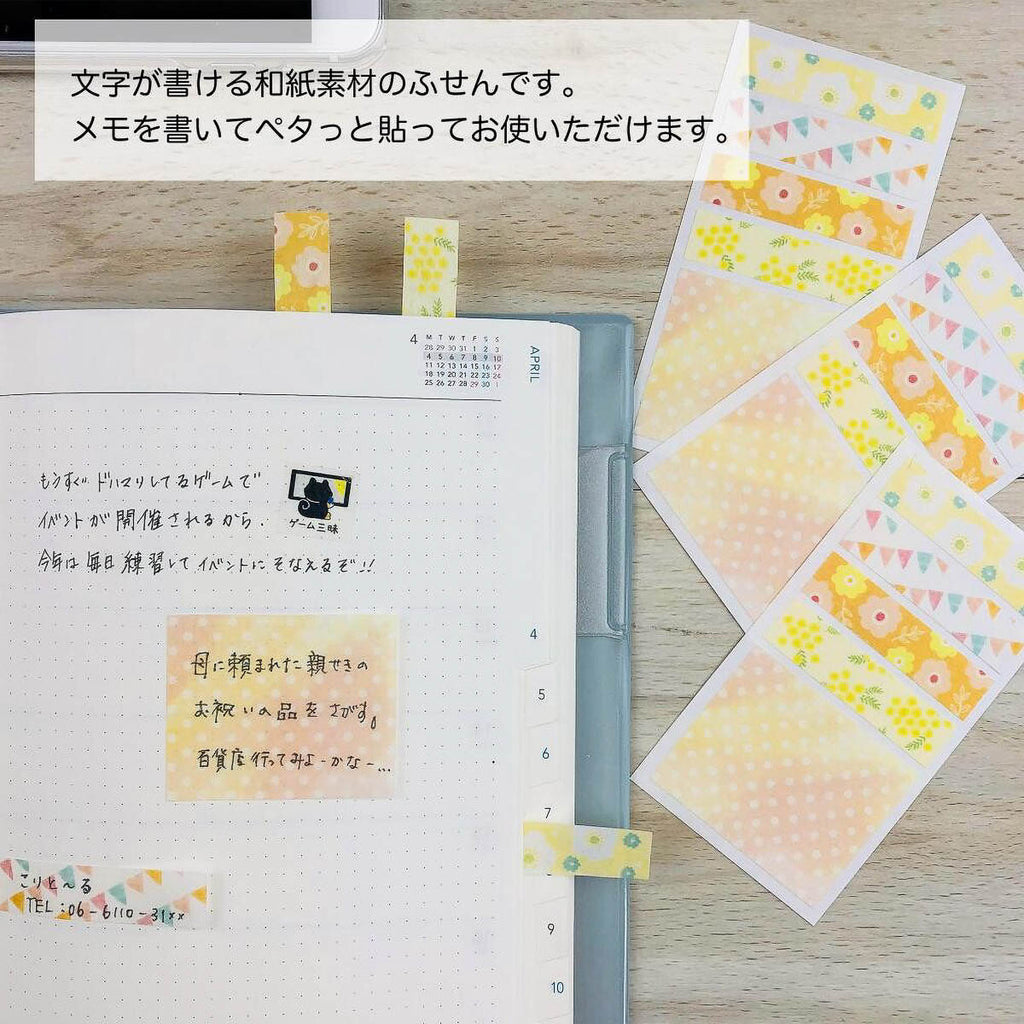 文字が書ける和紙素材のふせんです。
メモを書いてペタっと貼ってお使いただけます。
4
M T W T F S S
28 29 30 31 1 2 3
4 5 6 7 8 9 10
11 12 13 14 15 16 17
18 19 20 21 22 23 24
25 26 27 28 29 30 1
APRIL
もうすぐ ドハマりしてるゲームで
イベントが開催されるから.
今年は毎日練習してイベントにそなえるぞ!!
ゲーム三昧
母に頼まれた親せきの
お祝いの品をさがす。
百貨店行ってみよーかなー...
こりと〜る
TEL:06-6110-31××
4
5
6
7
9
10